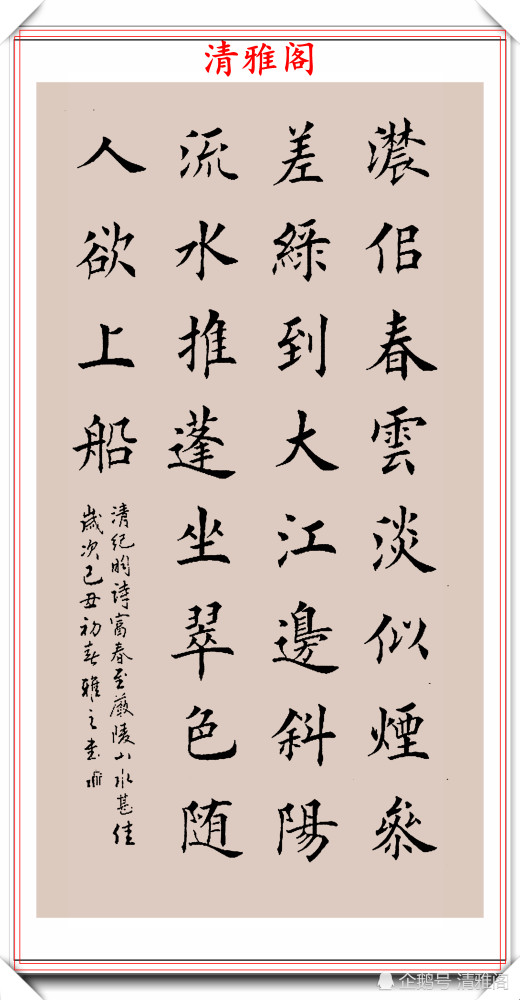 清雅阁
濃侣春雲淡似煙參
差綠到大江邊斜陽
流水推蓬坐翠色随
人欲上船
清紀昀詩富春至嚴陵山水甚佳
歲次己丑初春雅之書
企鹅号 清雅阁